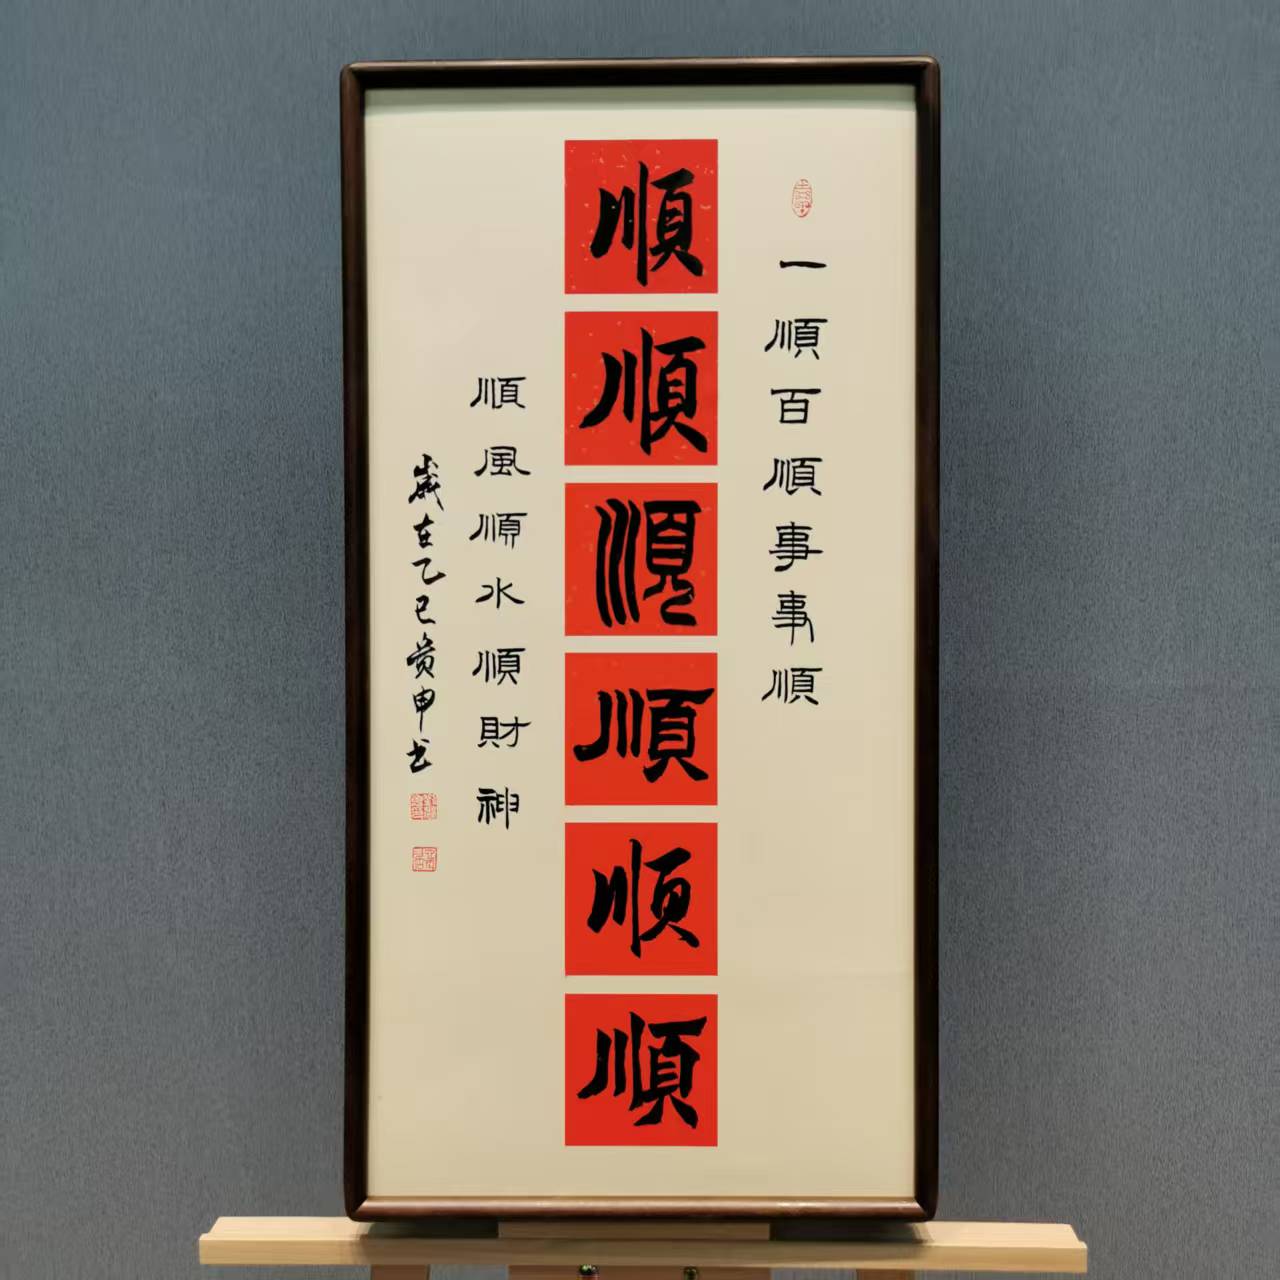 一順百順事事順
順
順
順
順
順
順
順風順水順財神
歲在乙巳贵申书